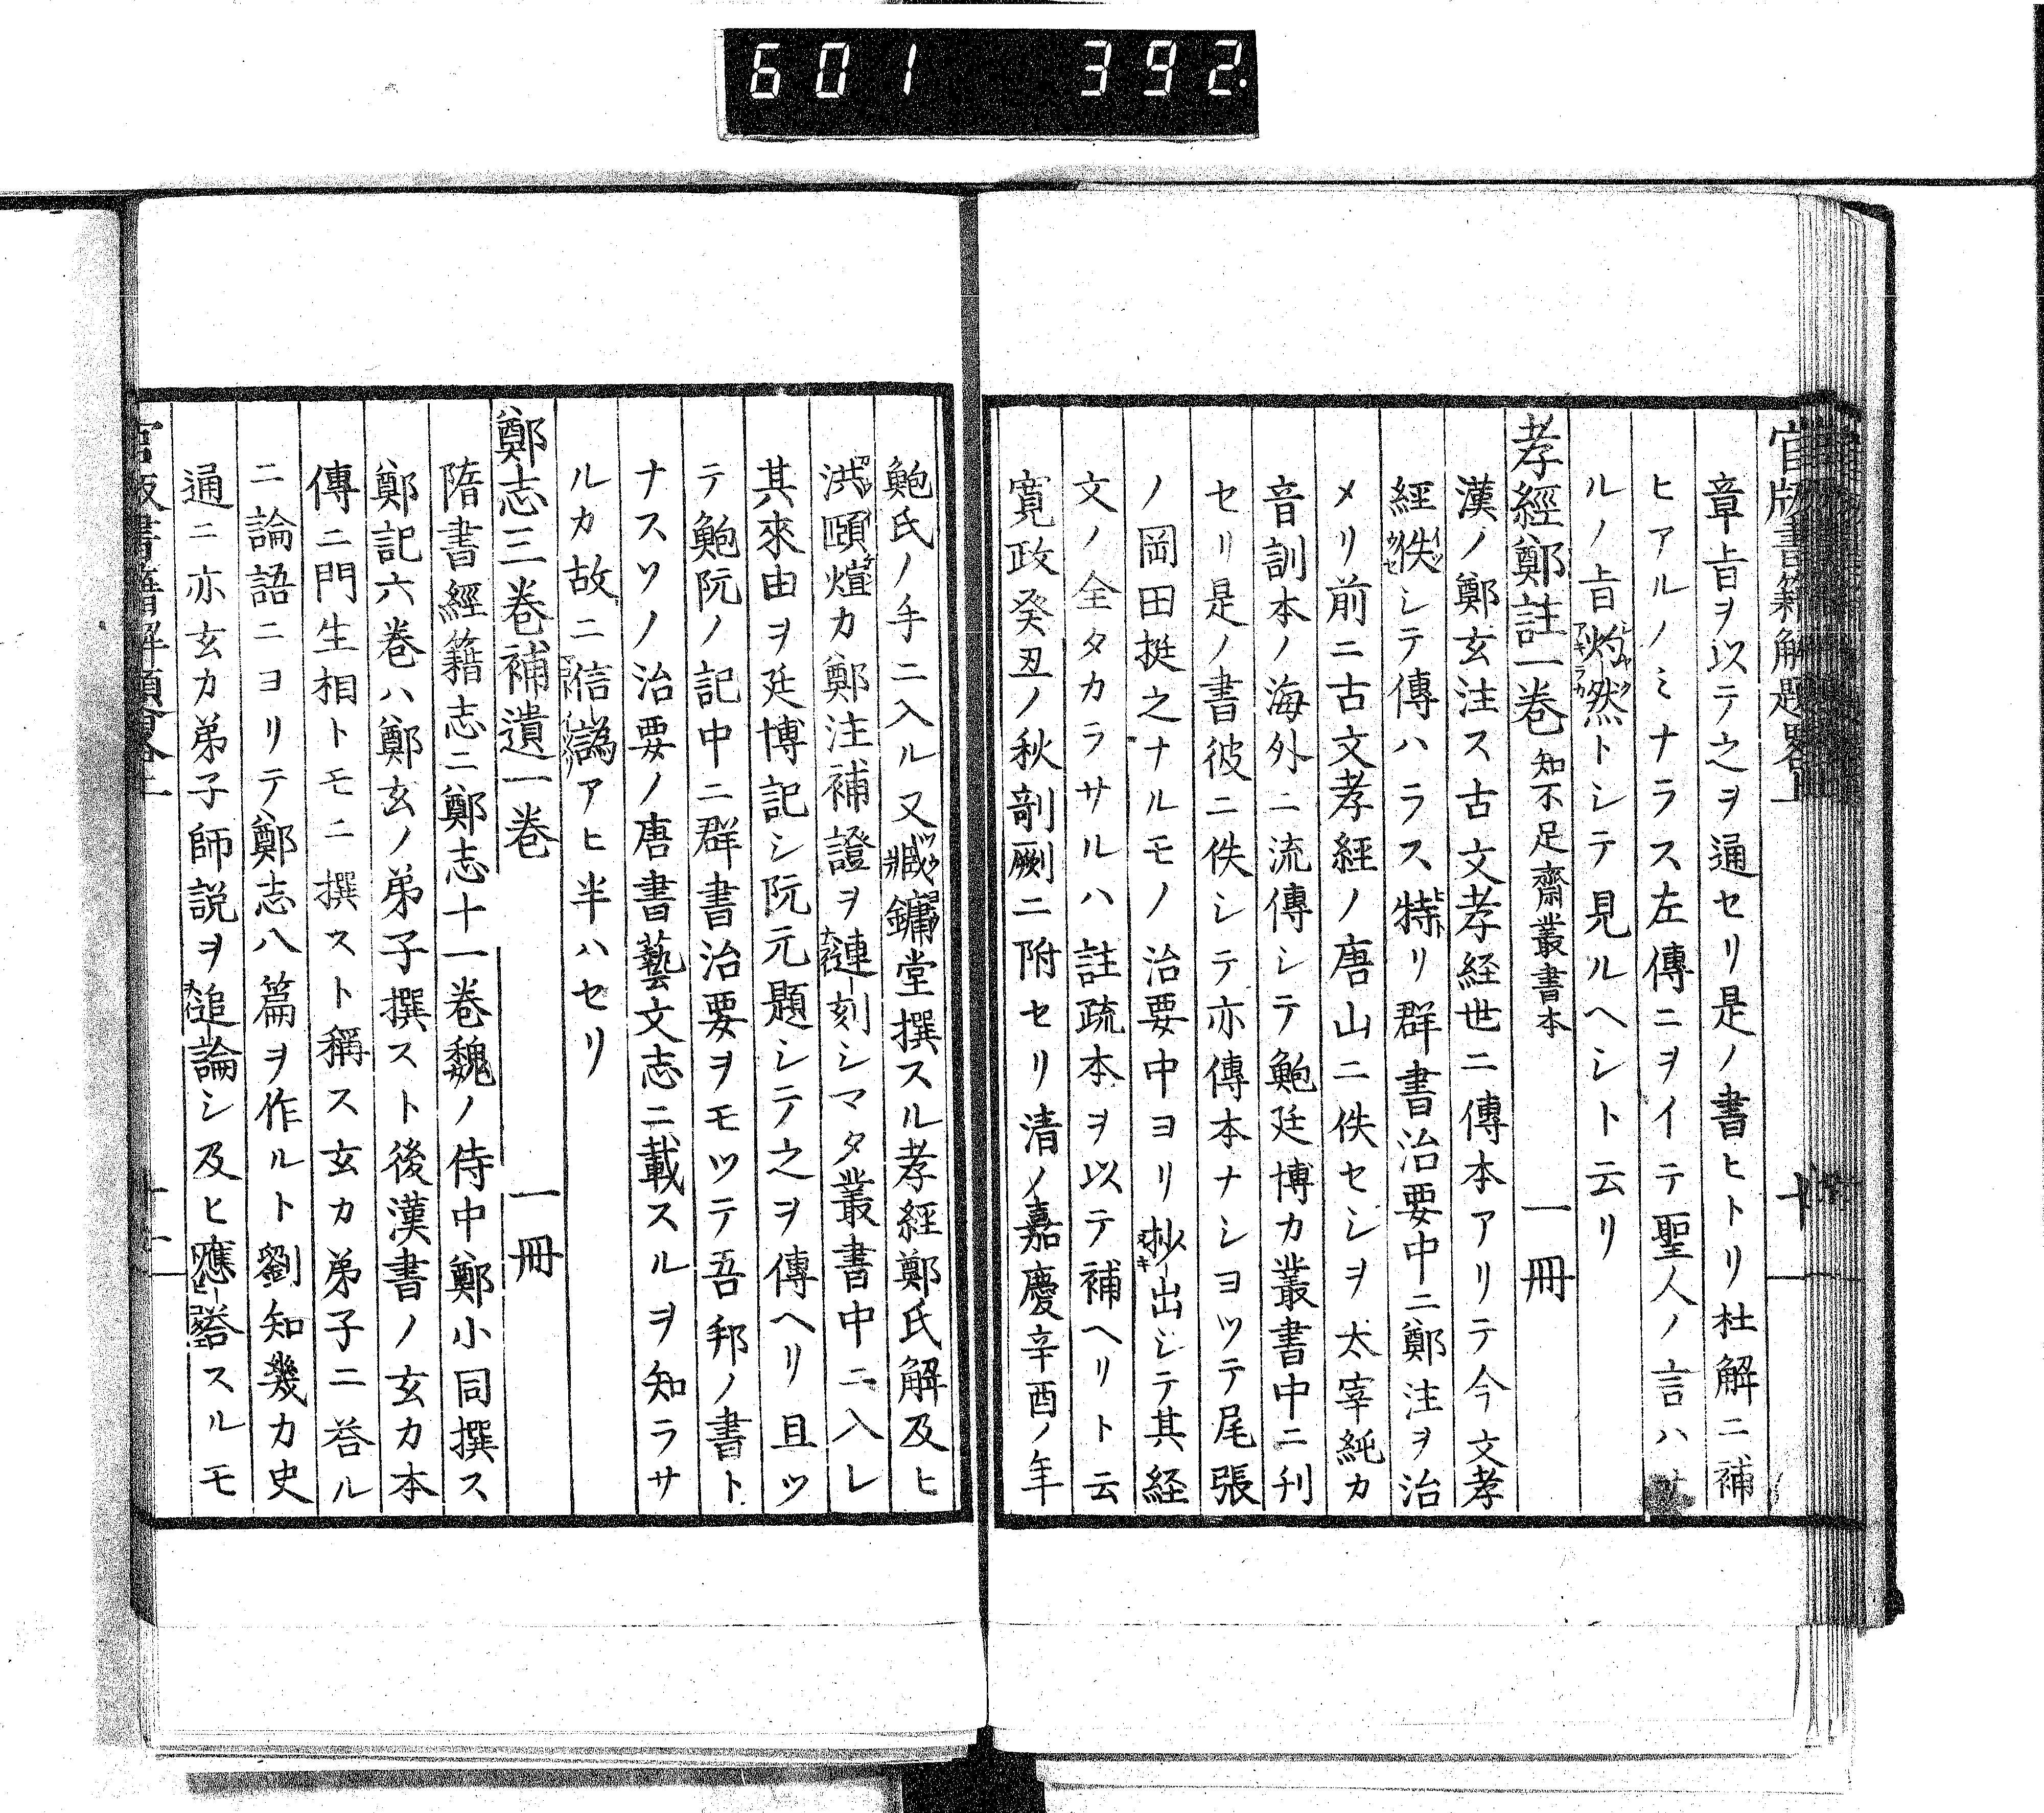 601 392.
官版書籍解題畧上 十
章旨ヲ以テ之ヲ通セリ是ノ書ヒトリ杜解ニ補
ヒアルノミナラス左傳ニヲイテ聖人ノ言ハサ
ルノ旨灼然トシテ見ルヘシト云リ
孝經鄭註一巻 知不足齋叢書本 一冊
漢ノ鄭玄注ス古文孝経世ニ傳本アリテ今文孝
經佚シテ傳ハラス特リ群書治要中ニ鄭注ヲ治
メリ前ニ古文孝経ノ唐山ニ佚セシヲ太宰純カ
音訓本ノ海外ニ流傳シテ鮑廷博カ叢書中ニ刊
セリ是ノ書彼ニ佚シテ亦傳本ナシヨツテ尾張
ノ岡田挺之ナルモノ治要中ヨリ抄出シテ其経
文ノ全タカラサルハ註疏本ヲ以テ補ヘリト云
寛政癸丑ノ秋剞劂ニ附セリ清ノ嘉慶辛酉ノ年
鮑氏ノ手ニ入ル又臧鏞堂撰スル孝経鄭氏解及ヒ
洪頤煊カ鄭注補證ヲ連刻シマタ叢書中ニ入レ
其來由ヲ廷博記シ阮元題シテ之ヲ傳ヘリ且ツ
テ鮑阮ノ記中ニ群書治要ヲモツテ吾邦ノ書ト
ナスソノ治要ノ唐書藝文志ニ載スルヲ知ラサ
ルカ故ニ信譌アヒ半ハセリ
鄭志三巻補遺一巻 一冊
隋書經籍志ニ鄭志十一巻魏ノ侍中鄭小同撰ス
鄭記六巻ハ鄭玄ノ弟子撰スト後漢書ノ玄カ本
傳ニ門生相トモニ撰スト稱ス玄カ弟子ニ荅ル
ニ論語ニヨリテ鄭志八篇ヲ作ルト劉知幾カ史
通ニ亦玄カ弟子師説ヲ追論シ及ヒ應荅スルモ